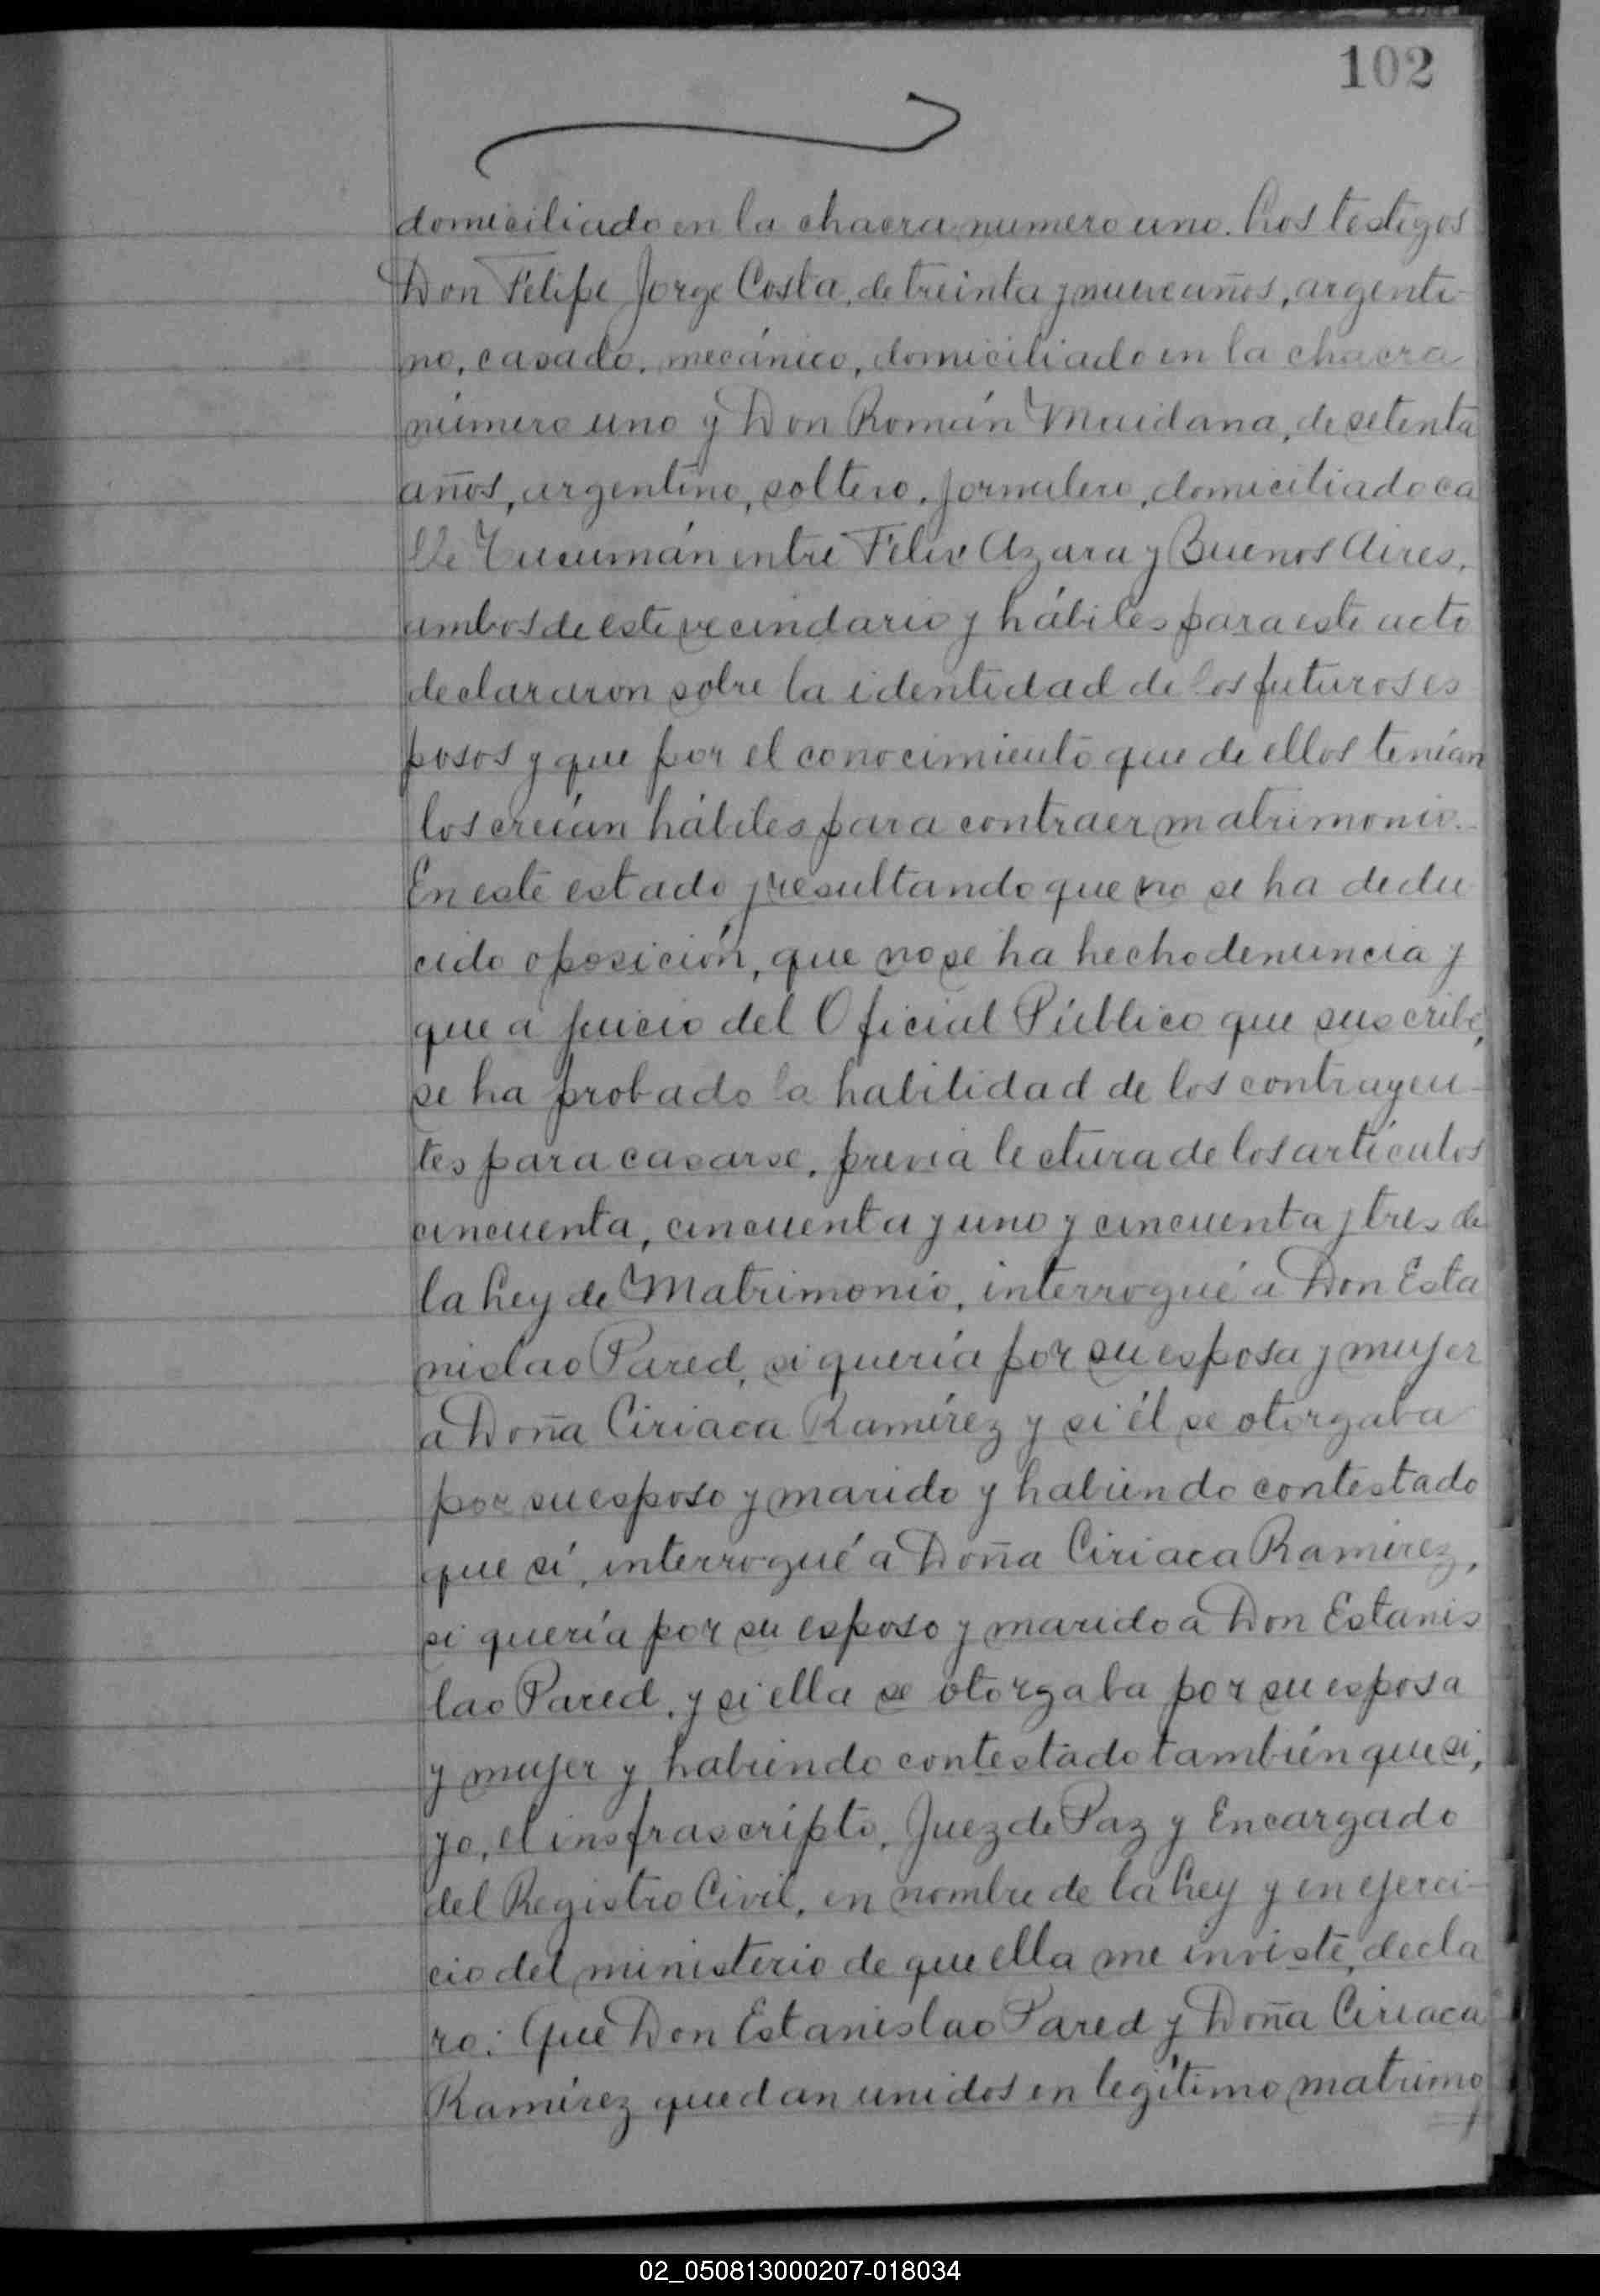 102
domiciliado en la chacra numero uno. Los testigos
Don Felipe Jorge Costa, de treinta y nueve años, argenti-
no, casado, mecánico, domiciliado en la chacra
número uno y Don Román Maidana, de setenta
años, argentino, soltero, jornalero, domiciliado ca
lle Tucumán entre Felix Azara y Buenos Aires,
ambos de este vecindario y hábiles para este acto
declararon sobre la identidad de los futuros es
posos y que por el conocimiento que de ellos tenían
los creían hábiles para contraer matrimonio.-
En este estado y resultando que no se ha dedu
cido oposición, que no se ha hecho denuncia y
que a juicio del Oficial Público que suscribe,
se ha probado la habilidad de los contrayen-
tes para casarse, previa lectura de los artículos
cincuenta, cincuenta y uno y cincuenta y tres de
la Ley de Matrimonio, interrogué a Don Esta
nislao Pared, si quería por su esposa y mujer
a Doña Ciriaca Ramírez y si él se otorgaba
por su esposo y marido y habiendo contestado
que sí, interrogué a Doña Ciriaca Ramírez,
si quería por su esposo y marido a Don Estanis
lao Pared, y si ella se otorgaba por su esposa
y mujer y habiendo contestado también que si,
yo, el insfrascripto, Juez de Paz y Encargado
del Registro Civil, en nombre de la Ley y en ejerci-
cio del ministerio de que ella me inviste, decla
ro: Que Don Estanislao Pared y Doña Ciriaca
Ramírez quedan unidos en legítimo matrimo
02_050813000207-018034